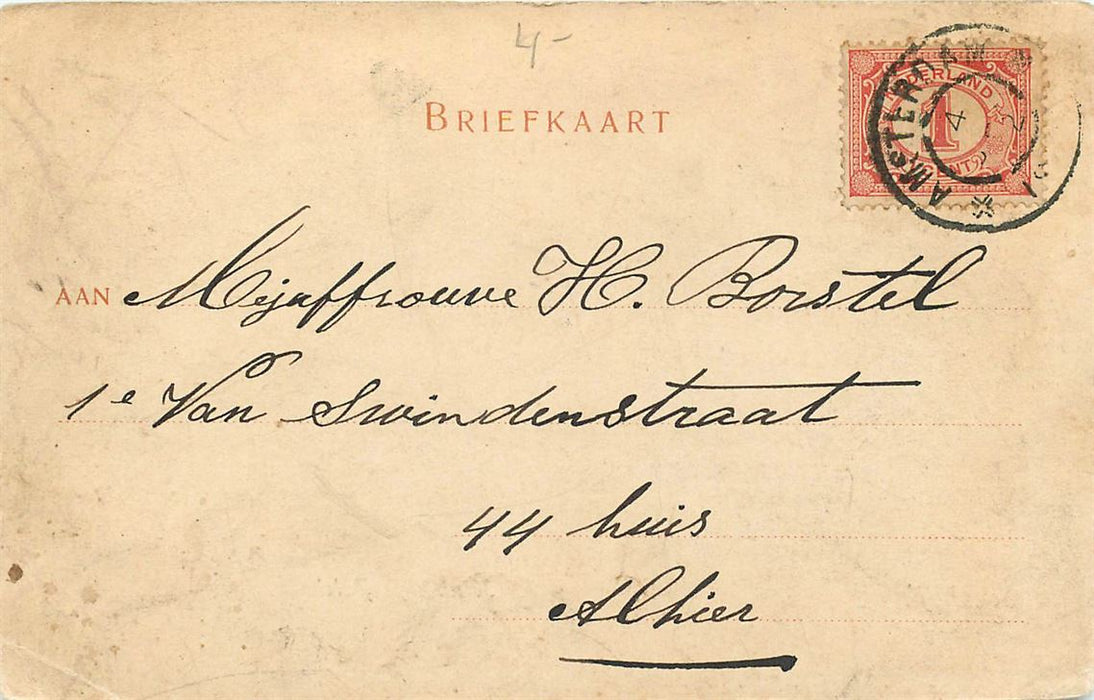 4-
BRIEFKAART
NEDERLAND
1
CENT
AMSTERDAM
4
AAN Mejaffrouwe H. Borstel
1e Van Swindenstraat
44 huis
Alhier